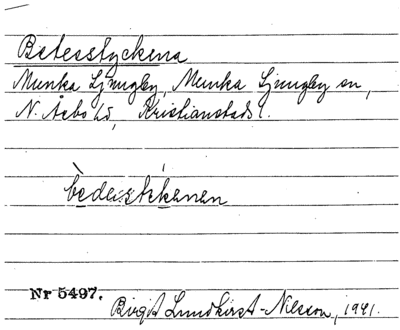 Betesstyckena
Munka Ljungby, Munka Ljungby sn,
N. Åsbo hd, Kristianstads l.
Nr 5497.
Birgit Lundkvist-Nilsson, 1941.